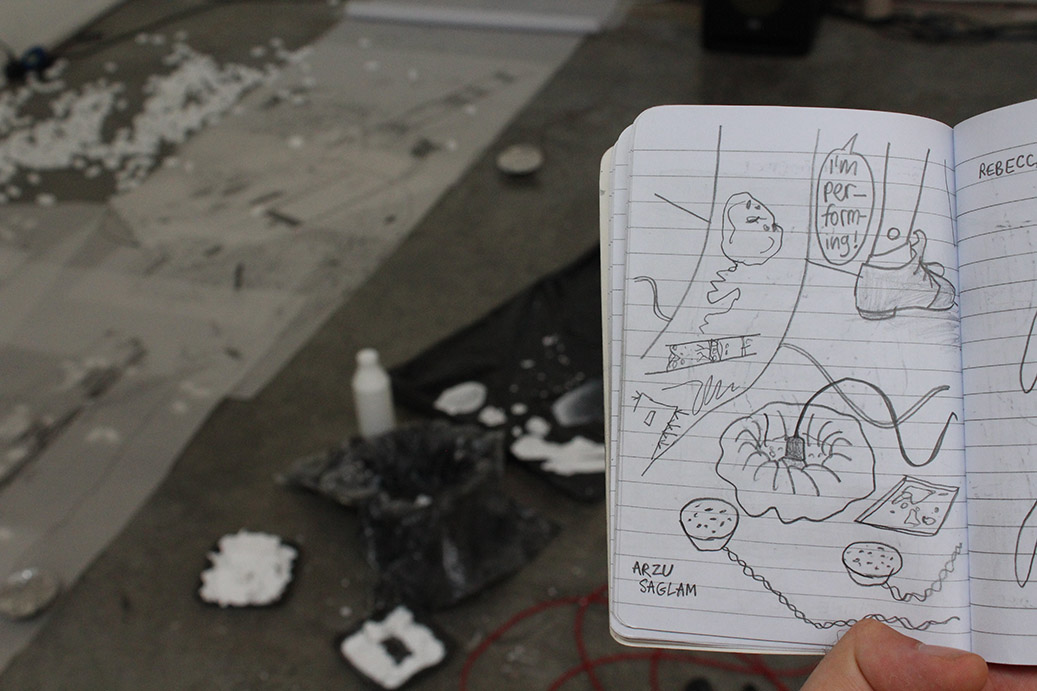 I'm
per-
form-
ing!
ARZU
SAGLAM
REBECC